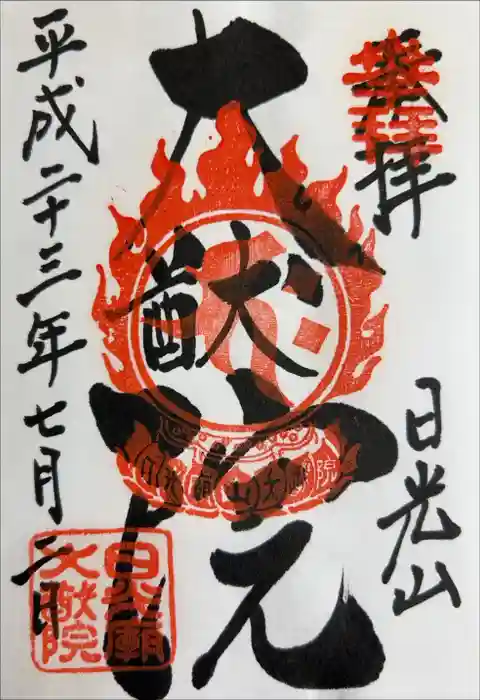 奉拝
日光山
大猷院
平成二十三年七月二日
日光廟
大猷院